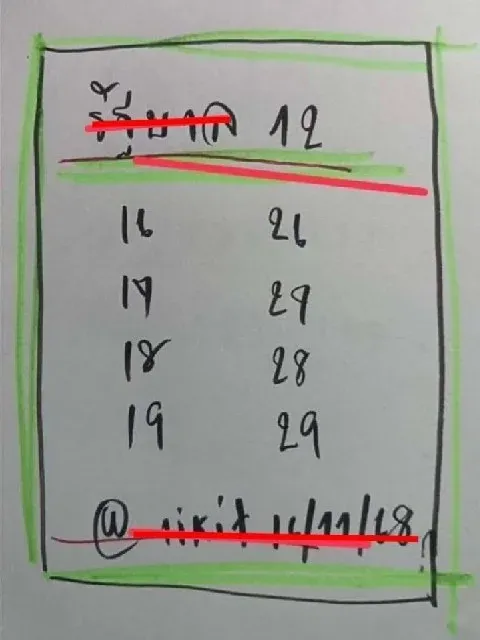 รัฐบาล 12
16 26
17 27
18 28
19 29
@ 16/11/68